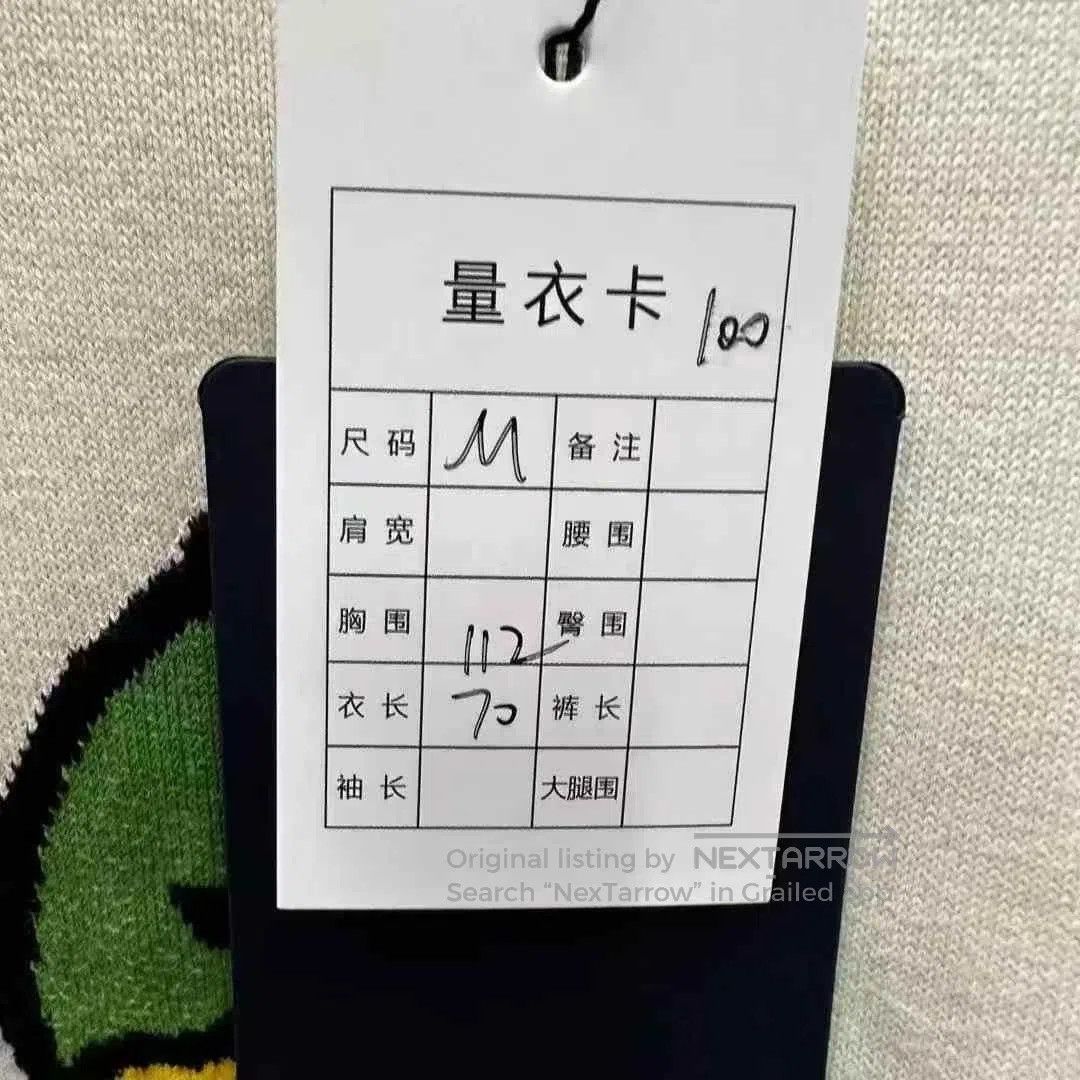 量衣卡 100
尺码 M 备注
肩宽 腰围
胸围 112 臀围
衣长 70 裤长
袖长 大腿围
Original listing by NEXTARROW
Search “NexTarrow” in Grailed